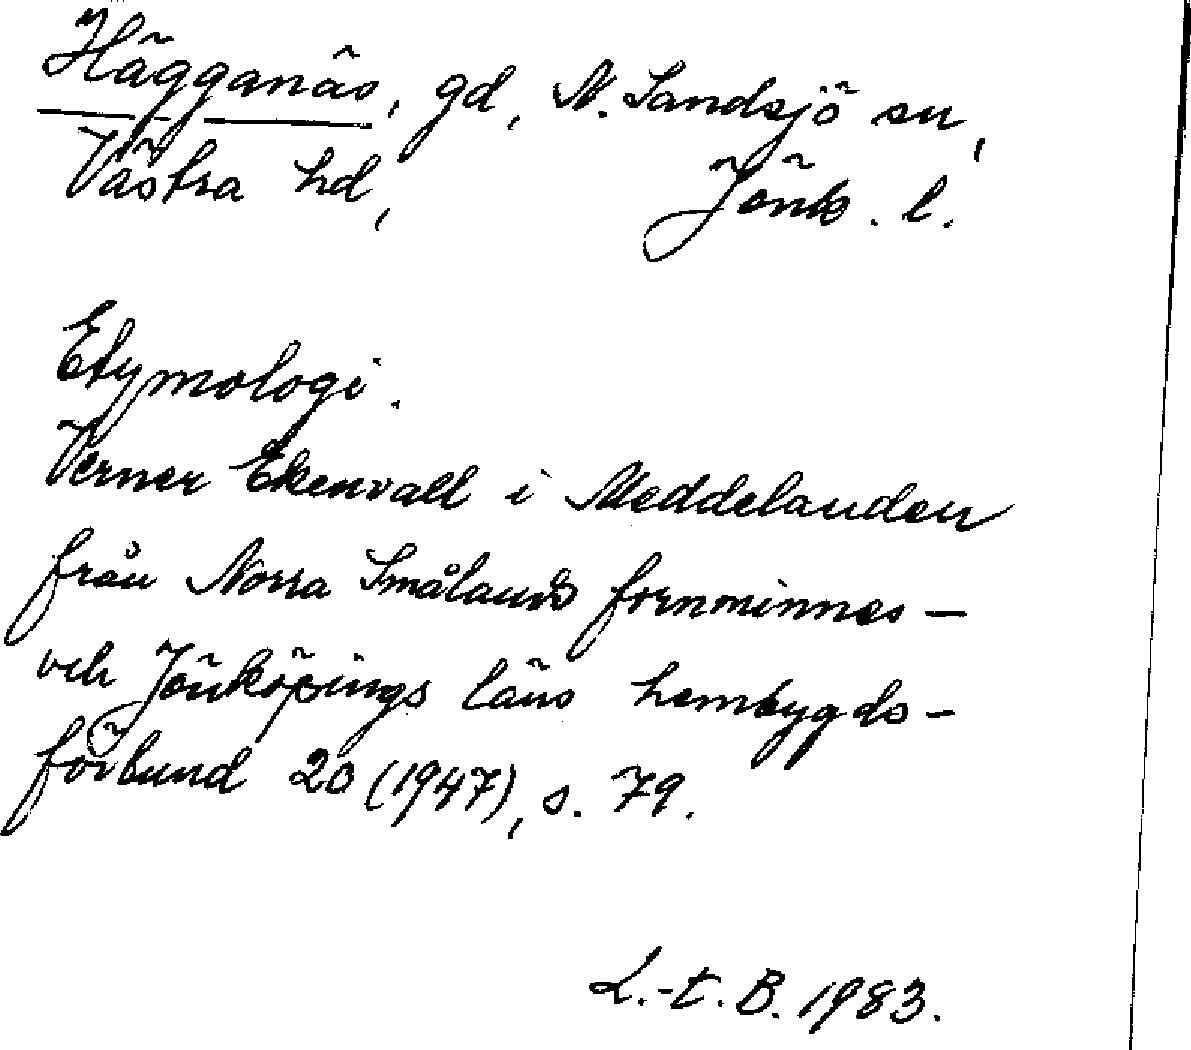 Hägganäs, gd, N. Sandsjö sn,
Västra hd, Jönk. l.
Etymologi.
Verner Ekenvall i Meddelanden
från Norra Smålands fornminnes-
och Jönköpings läns hembygds-
förbund 20 (1947), s. 79.
L.-t. B. 1983.